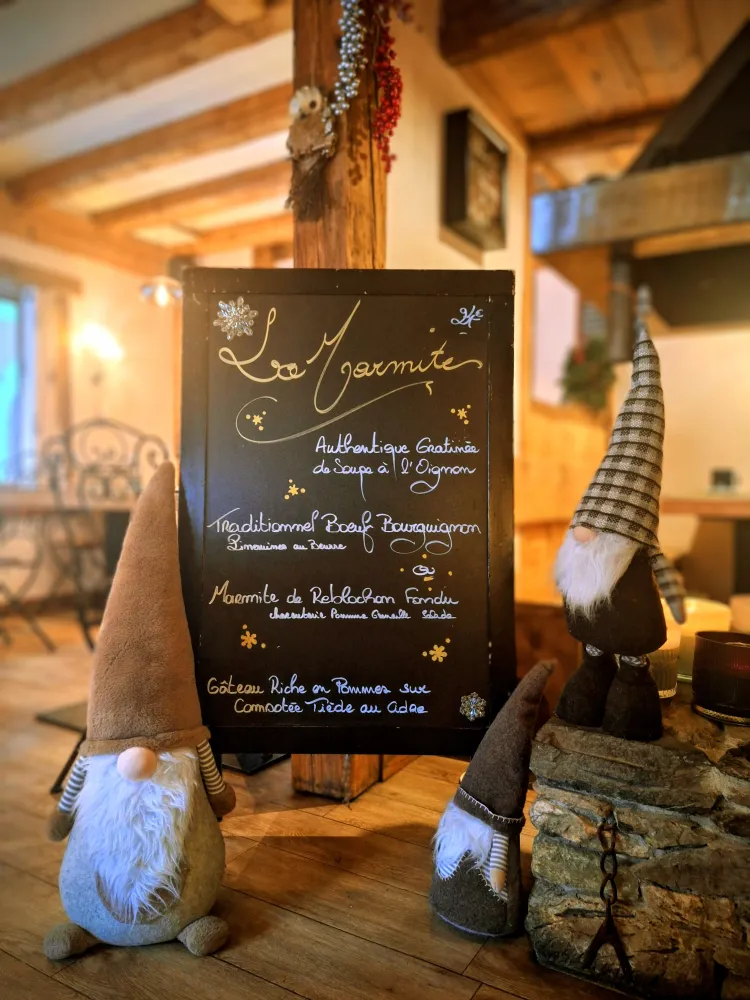 La Marmite
Authentique Gratinée
de Soupe à l'Oignon
Traditionnel Bœuf Bourguignon
Linguines au Beurre
ou
Marmite de Reblochon Fondu
charcuterie Pomme Grenaille Salade
Gâteau Riche en Pommes sur
Compotée Tiède au Cidre